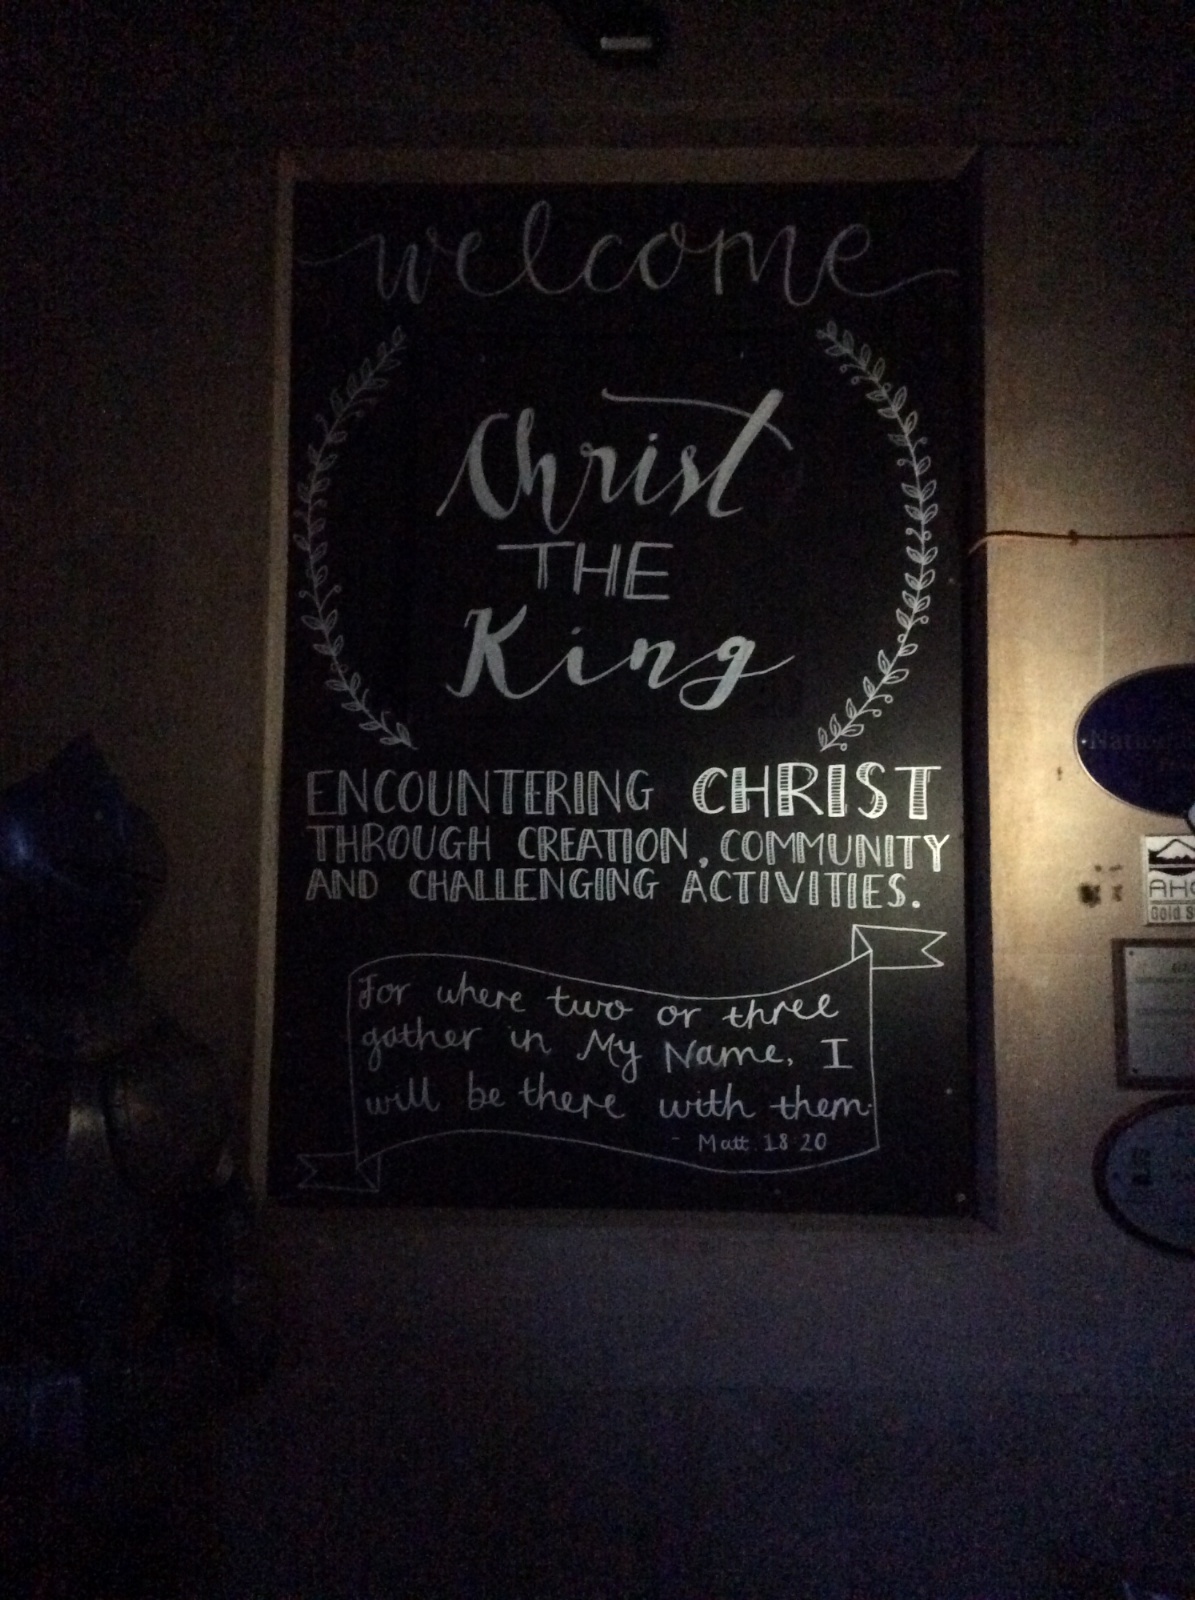 welcome
Christ
THE
King
ENCOUNTERING CHRIST
THROUGH CREATION, COMMUNITY
AND CHALLENGING ACTIVITIES.
For where two or three
gather in My Name, I
will be there with them.
- Matt. 18 20
Natio
AHO
Gold S